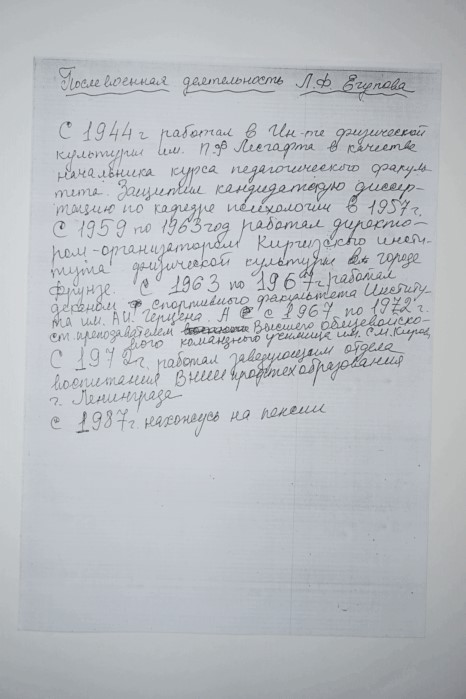 Послевоенная деятельность Л.Ф. Егупова
С 1944 г работал в Ин-те физической
культуры им. П.Ф Лесгафта в качестве
начальника курса педагогического факуль-
тета. Защитил кандидатскую диссер-
тацию по кафедре психологии в 1957 г.
С 1959 по 1963 год работал директо-
ром-организатором Киргизского инсти-
тута физической культуры в городе
Фрунзе. С 1963 по 1967 г. работал
деканом спортивного факультета Институ
та им. А.И. Герцена. А с 1967 по 1972 г.
ст. преподавателем Высшего Общевойско-
вого командного училища им. С.М. Киров
С 1972 г. работал заведующим отдела
воспитания ВНИИ профтехобразования
г. Ленинграда
С 1987 г. нахожусь на пенсии